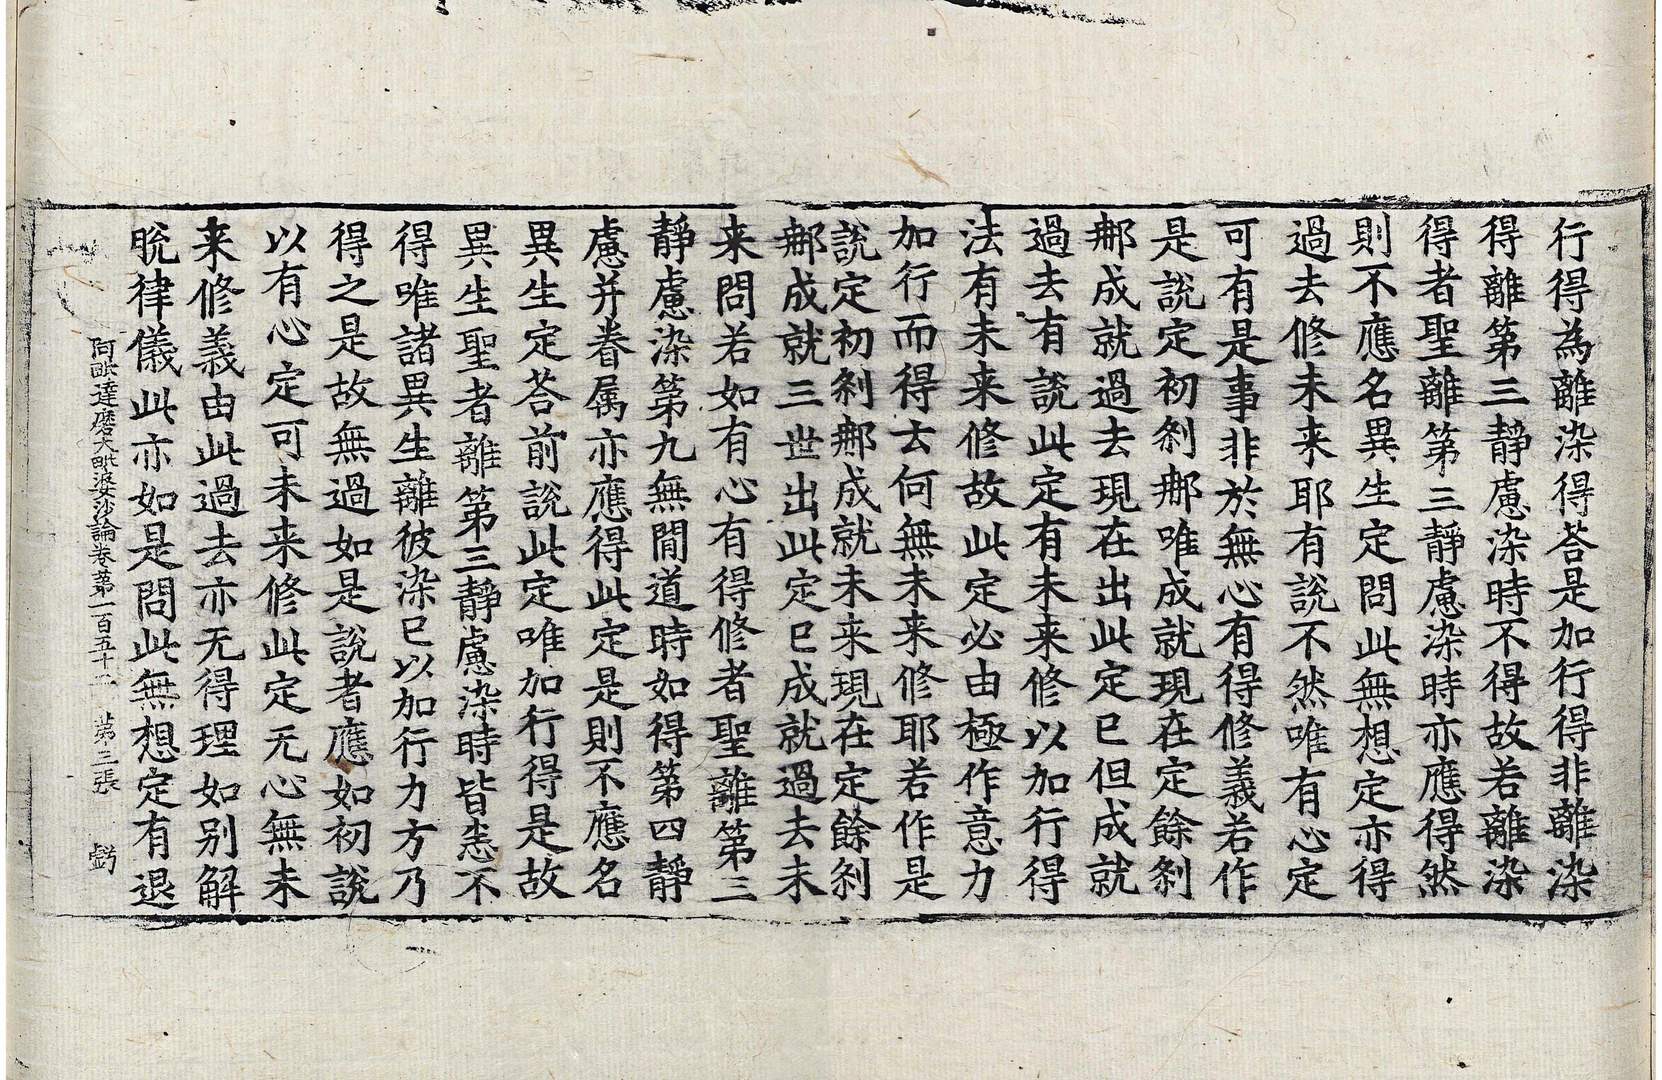 行得為離染得荅是加行得非離染
得離第三靜慮染時不得故若離染
得者聖離第三靜慮染時亦應得然
則不應名異生定問此無想定亦得
過去修未来耶有說不然唯有心定
可有是事非於無心有得修義若作
是說定初刹那唯成就現在定餘刹
那成就過去現在出此定已但成就
過去有說此定有未来修以加行得
法有未来修故此定必由極作意力
加行而得云何無未来修耶若作是
說定初刹那成就未来現在定餘刹
那成就三世出此定已成就過去未
来問若如有心有得修者聖離第三
靜慮染第九無間道時如得第四靜
慮并眷属亦應得此定是則不應名
異生定荅前說此定唯加行得是故
異生聖者離第三靜慮染時皆悉不
得唯諸異生離彼染已以加行力方乃
得之是故無過如是說者應如初說
以有心定可未来修此定无心無未
来修義由此過去亦无得理如别解
脫律儀此亦如是問此無想定有退
阿毗達磨大毗婆沙論卷第一百五十二 第三張 虧